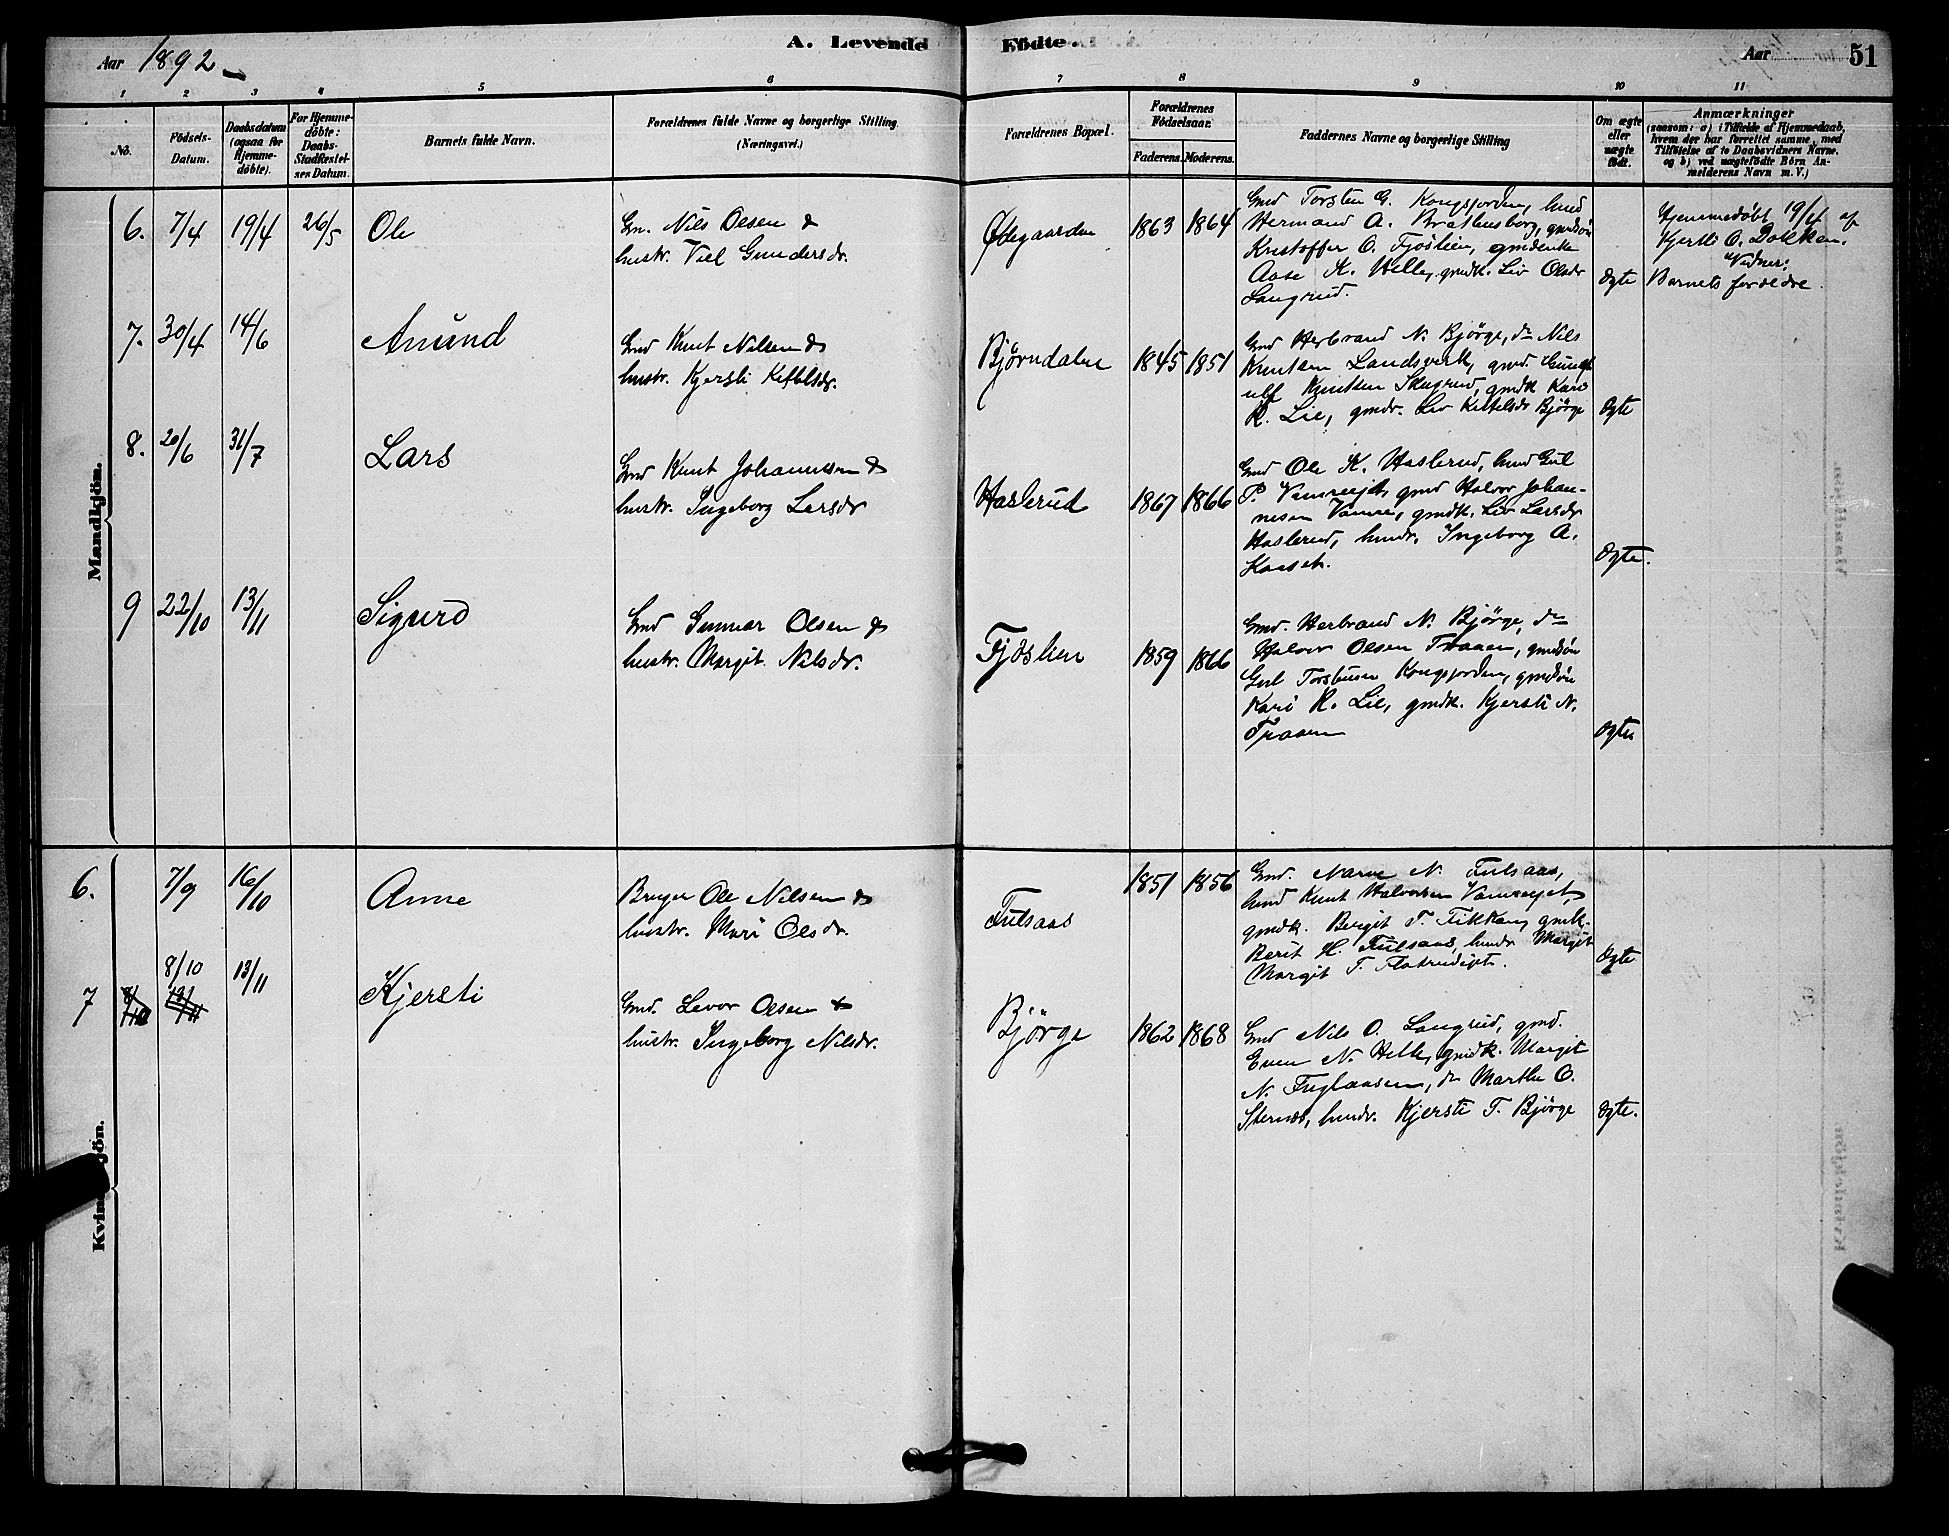 Aar 1892
A. Levende Födte.
Aar
51
1 2 3 4 5 6 7 8 9 10 11
No.
Födsels-
Datum.
Daabsdatum
(ogsaa for
Hjemme-
döbte).
For Hjemme-
döbte:
Daabs-
Stadfæstel-
ses Datum.
Barnets fulde Navn.
Forældrenes fulde Navne og borgerlige Stilling.
(Næringsvei.)
Forældrenes Bopæl.
Forældrenes
Födselsaar.
Faderens. Moderens.
Faddernes Navne og borgerlige Stilling
Om ægte
eller
uægte
födt.
Anmærkninger
(saasom: a) i Tilfælde af Hjemmedaab,
hvem der har forrettet samme, med
Tilföielse af to Daabsvidners Navne.
og b) ved uægtefödte Börn An-
melderens Navn m. V.)
Mandkjön.
6. 7/4 19/4 26/5 Ole
Gm. Nils Olsen &
hustr. Viel Gundersdr.
Ødegaarden 1863 1864
Gmd Torsten G. Kongsjorden, hmd
Hermand A. Brathensborg, gmdsön
Kristoffer O. Fjöslien, gmdenke
Aase K. Helle, gmdk. Liv Olsdr
Langrud.
Ægte
Hjemmedöbt 19/4 af
Kjersti O. Dokken.
Vidner:
Barnets forældre.
7. 30/4 14/6 Amund
Gmd Knut Nilsen &
hustr. Kjersti Kittilsdr.
Björndalen 1845 1851
Gmd Herbrand N. Björge, do Nils
Knutsen Landsverk, gmd.
ulf Knutsen Skugrud, gmdk Kari
K. Lie, gmdr. Liv Kittelsdr Björge
Ægte
8. 20/6 31/7 Lars
Gmd Knut Johannessen &
hustr. Ingeborg Larsdr
Haslerud 1867 1866
Gmd Ole K. Haslerud, hmd Gul
P. gmd Halvor Johan-
nesen Vamre, gmdk. Liv Larsdr
Haslerud, hmdr. Ingeborg A.
Kaaset.
Ægte.
9 22/10 13/11 Sigurd
Gmd Gunnar Olsen &
hustr. Margit Nilsdr.
Fjöslien 1859 1866
Gmd. Herbrand N. Björge, do
Halvor Olsen Traaen, gmdsön
Gul Torstensen Kongsjorden, gmdsön
Kari K. Lie, gmdk. Kjersti N.
Traaen
Ægte
Kvindekjön.
6. 7/9 16/10 Anne
Bruger Ole Nilsen &
hustr. Mari Olsdr.
Fulsaas 1851 1856
Gmd. Narve N. Fulsaas,
hmd Knut Halvorsen
gmdk. Bergit T. Fikkan, gmdk.
Berit H. Fulsaas, hmdr Margit
Margit T.
Ægte
7 8/10 13/11 Kjersti
Gmd. Levor Olsen &
hustr. Ingeborg Nilsdr.
Björge 1862 1868
Gmd Nils O. Langrud, gmd.
Even N. Helle, gmdk. Margit
N. Fuglaasen, do Marthe O.
hmdr. Kjersti T. Björge
Ægte.